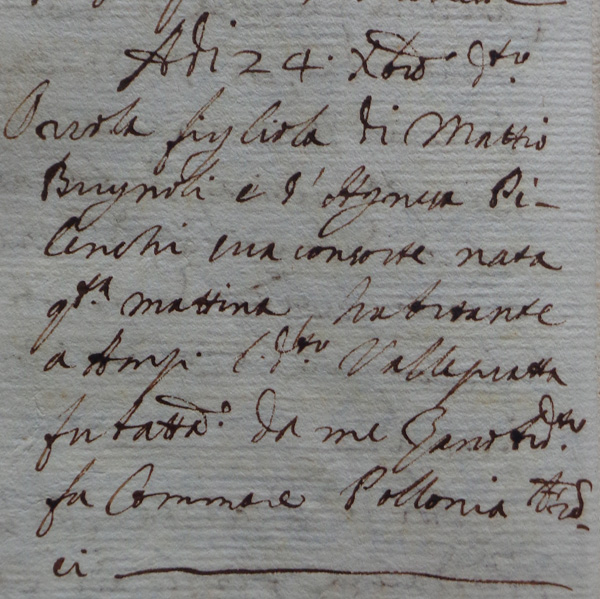 Adi 24. Xbre dto
Orsola figliola di Mattio
Brugnoli e d' Agnesa Pi-
lenchi sua consorte nata
qta. mattina habitante
a dto Vallepiatta
fu batta. da me dto
fu Commare Pollonia
ci